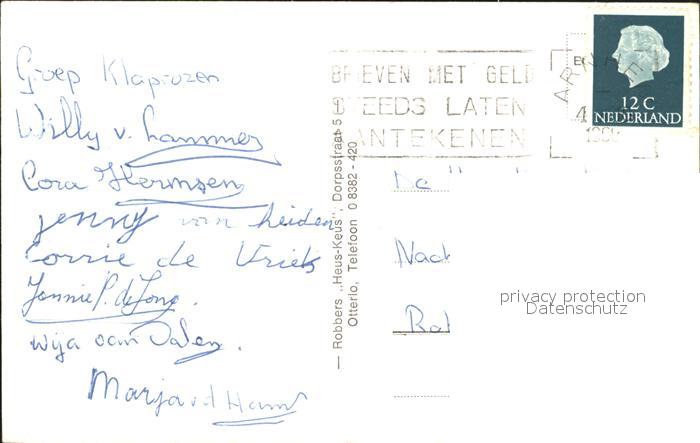 Groep Klaprozen
Willy v. Lammer
Cora Hermsen
Jenny van heiden
Corrie de Vries
Jannie P. de Jong.
Wija van Dalen.
Marja v d Ham
— Robbers „Heus-Keus", Dorpsstraat 5
Otterlo, Telefoon 0 8382 - 420
BRIEVEN MET GELD
STEEDS LATEN
AANTEKENEN
12 C
NEDERLAND
De
privacy protection
Datenschutz